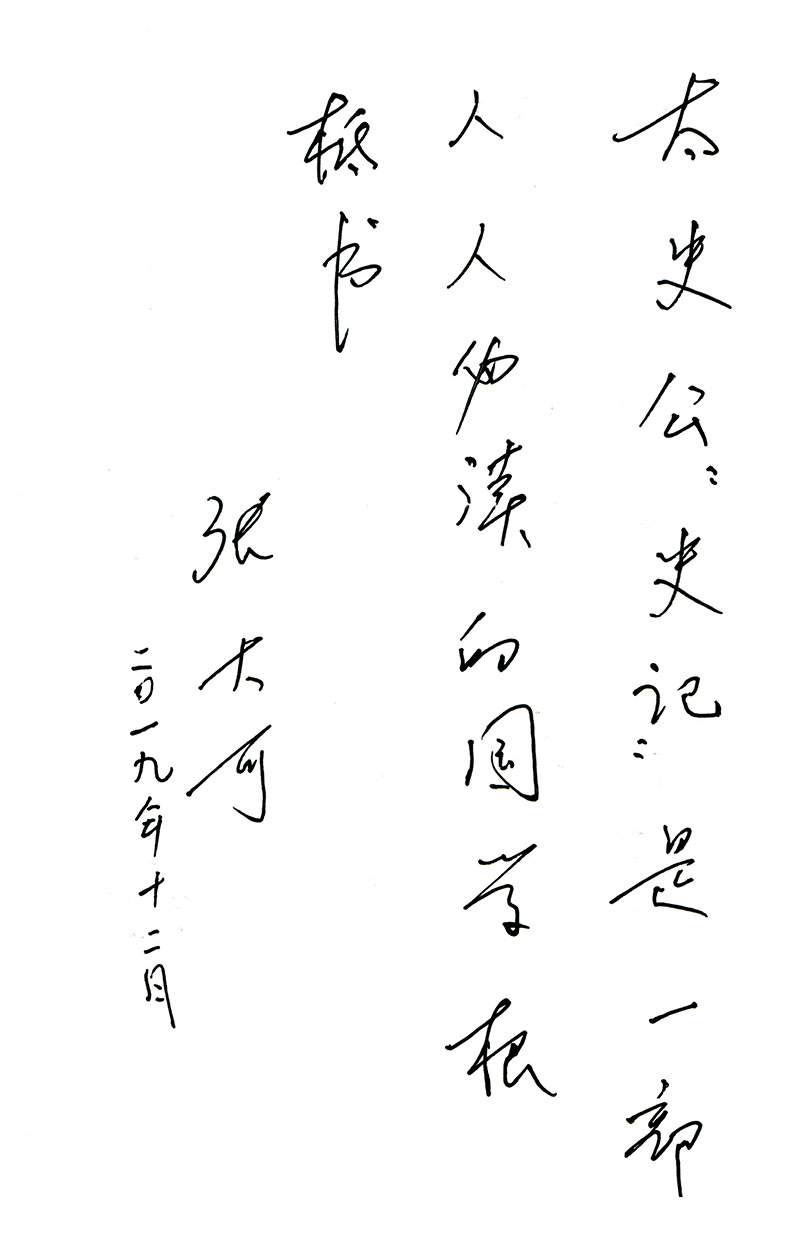 太史公“史记”是一部
人人必读的国学根
柢书
张大可
二〇一九年十二月